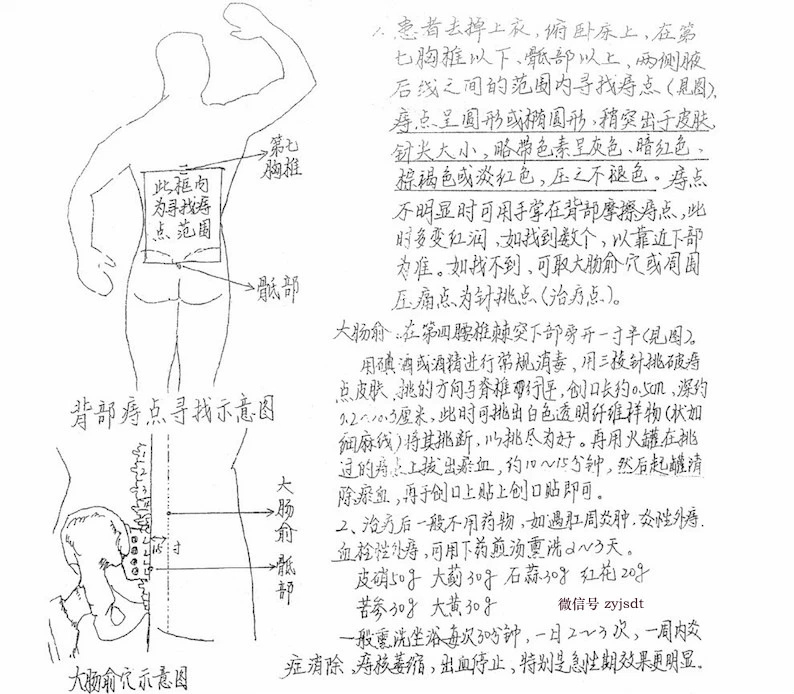 第七
胸椎
此框内
为寻找痔
点范围
骶部
背部痔点寻找示意图
大肠俞
骶部
1.5寸
大肠俞穴示意图
1.患者去掉上衣，俯卧床上，在第
七胸椎以下、骶部以上，两侧腋
后线之间的范围内寻找痔点（见图），
痔点呈圆形或椭圆形，稍突出于皮肤，
针尖大小，略带色素呈灰色、暗红色、
棕褐色或淡红色，压之不褪色。痔点
不明显时可用手掌在背部摩擦痔点，此
时多变红润，如找到数个，以靠近下部
为准。如找不到，可取大肠俞穴或周围
压痛点为针挑点（治疗点）。
大肠俞：在第四腰椎棘突下部旁开一寸半（见图）。
用碘酒或酒精进行常规消毒，用三棱针挑破痔
点皮肤，挑的方向与脊椎平行，创口长约0.5cm，深约
0.2～0.3厘米，此时可挑出白色透明纤维样物（状如
细麻线）将其挑断，以挑尽为好。再用火罐在挑
过的痔点上拔出瘀血，约10～15分钟，然后起罐清
除瘀血，再于创口上贴上创口贴即可。
2、治疗后一般不用药物，如遇肛周炎肿、炎性外痔、
血栓性外痔，可用下药煎汤熏洗2～3天。
皮硝50g 大蓟30g 石蒜30g 红花20g
苦参30g 大黄30g
微信号 zyjsdt
一般熏洗坐浴每次30分钟，一日2～3次，一周内炎
症消除、痔核萎缩，出血停止，特别是急性期效果更明显。